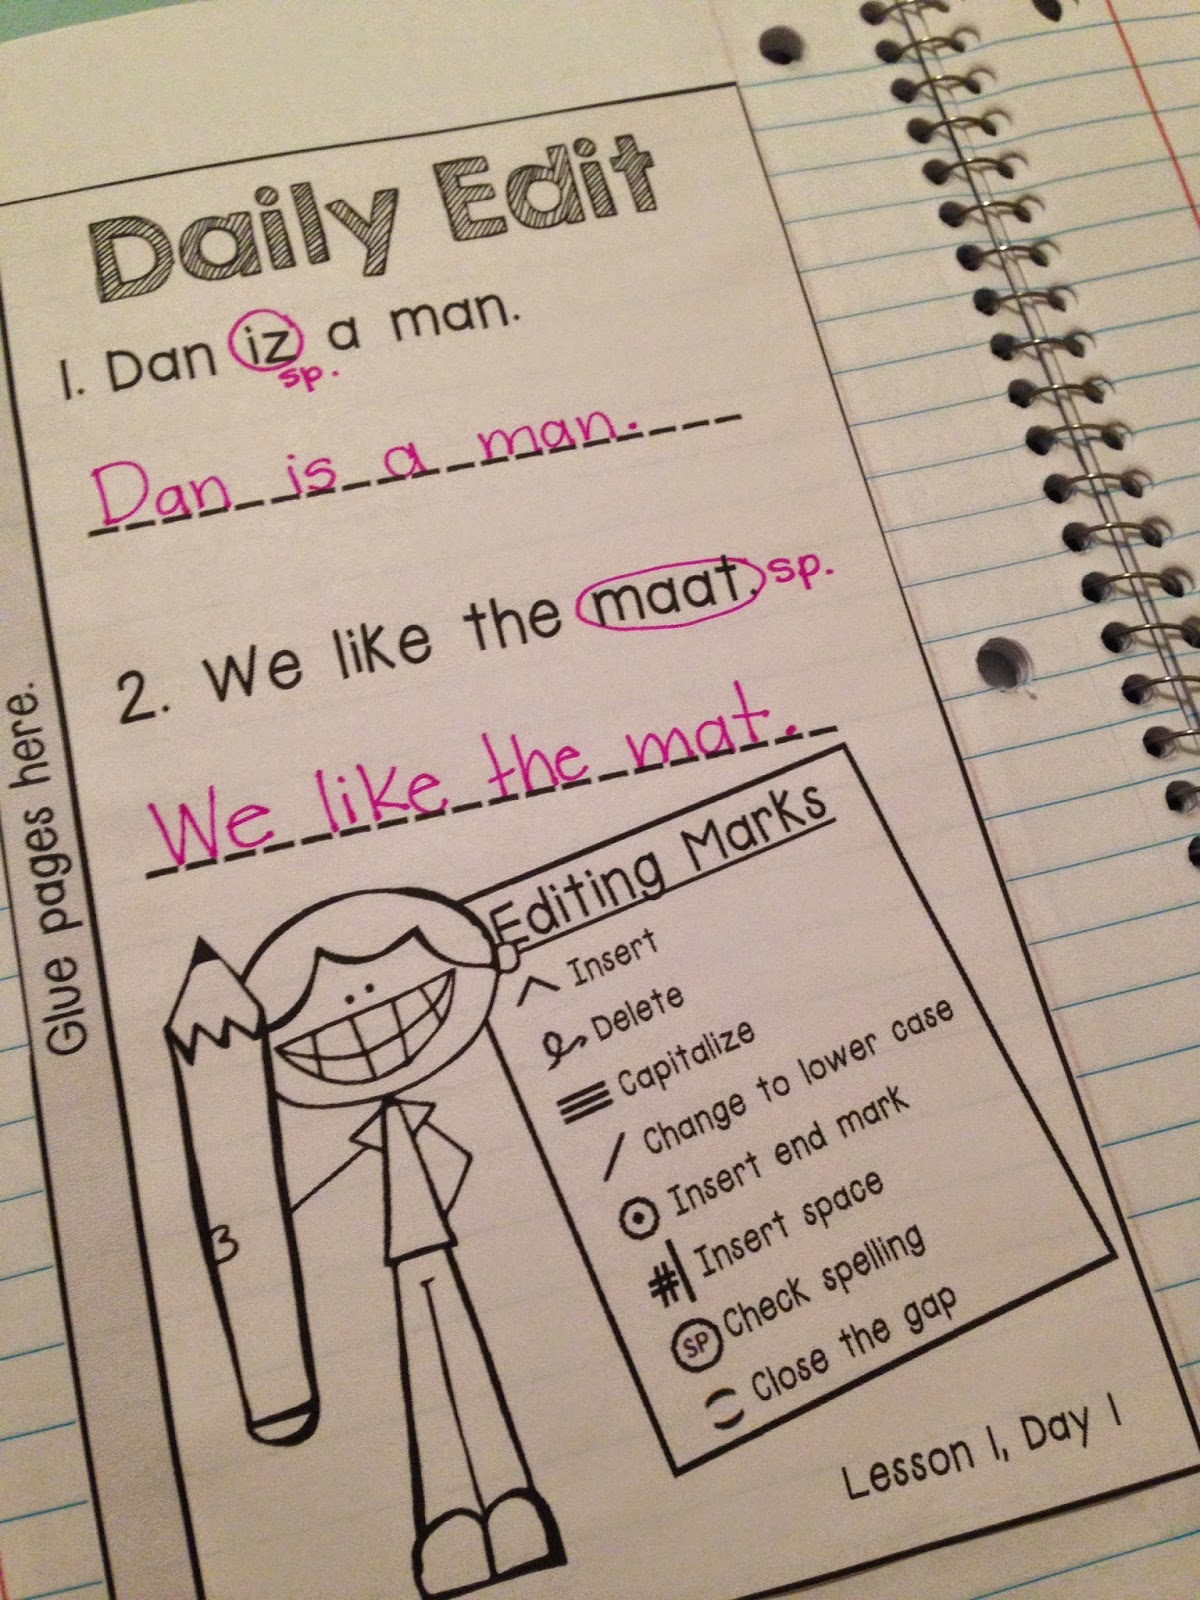 Daily Edit
1. Dan iz a man.
sp.
Dan is a man.
2. We like the maat. sp.
We like the mat.
Glue pages here.
Editing Marks
^ Insert
Delete
≡ Capitalize
/ Change to lower case
⊙ Insert end mark
#| Insert space
SP Check spelling
Close the gap
3
Lesson 1, Day 1